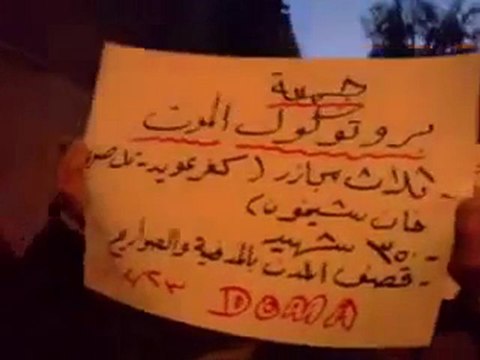 جمعة
بروتوكول الموت
- ثلاث مجازر (كفرعويد -
خان شيخون)
- ٣٥٠ شهيد
- قصف المدن بالمدفعية والصواريخ
٢٣ DOMA